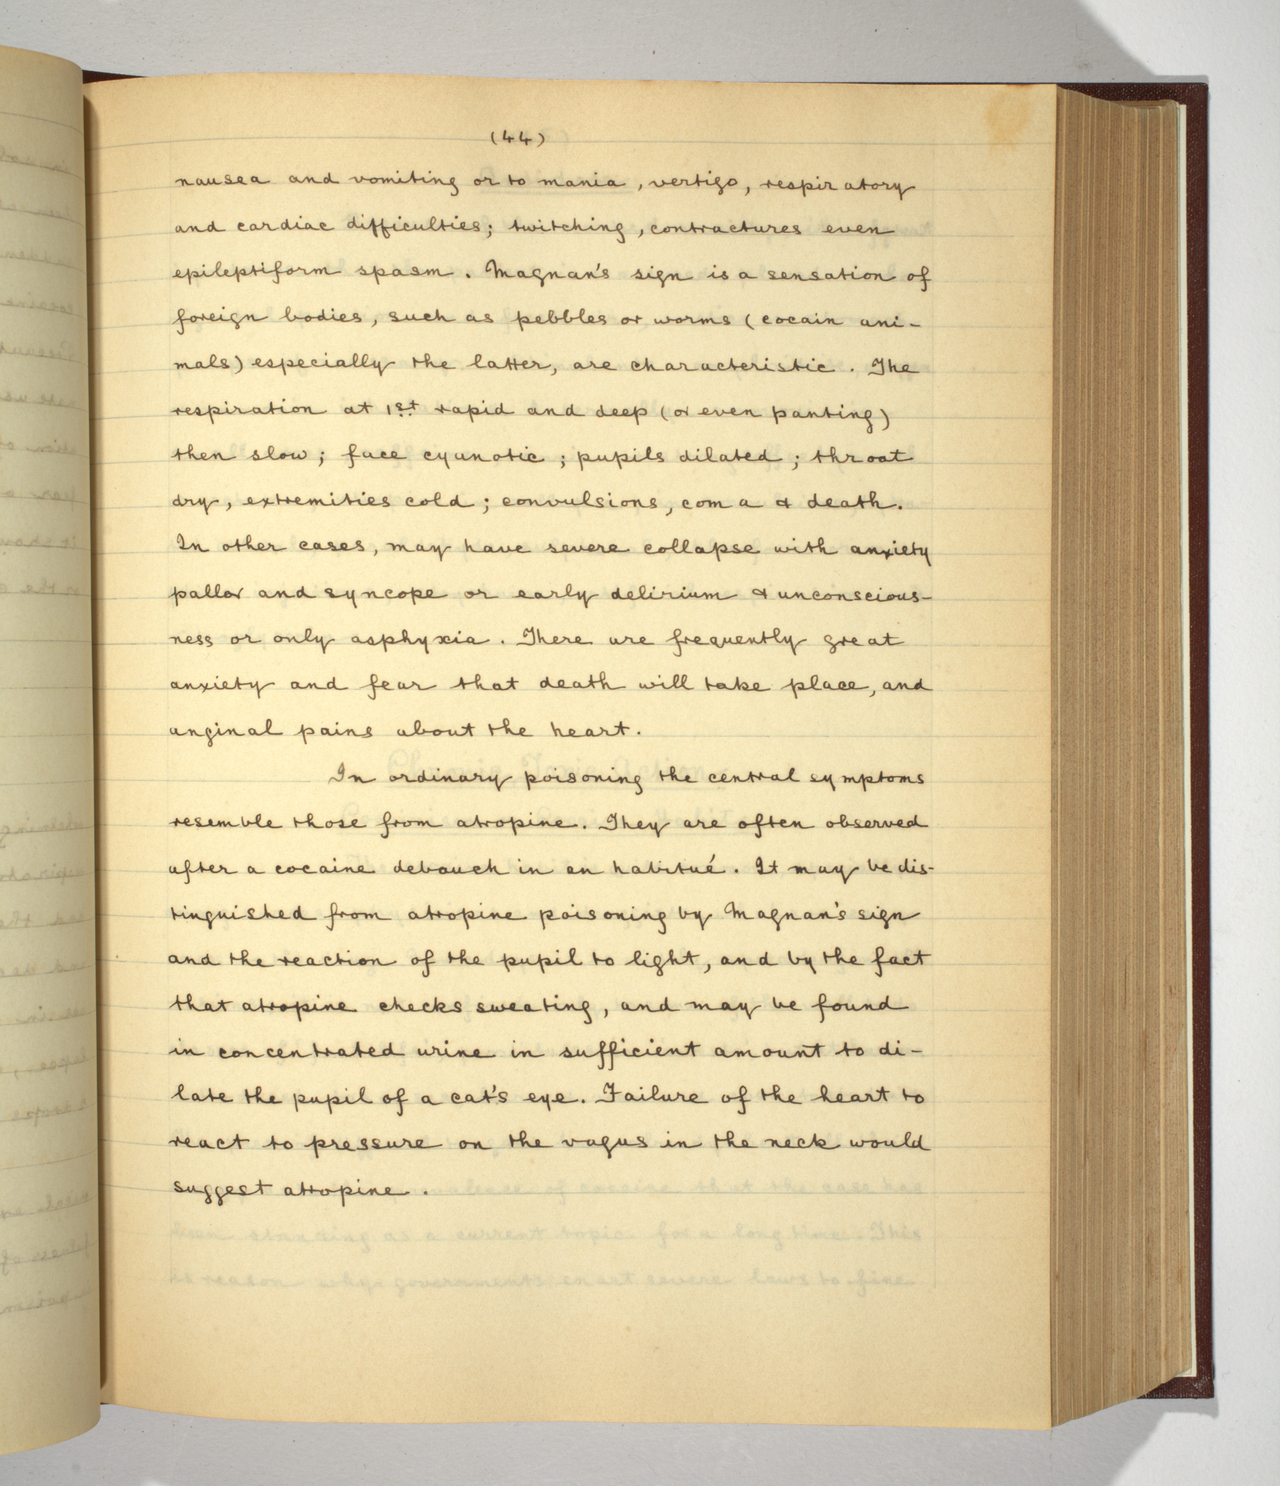 (44)
nausea and vomiting or to mania, vertigo, respiratory
and cardiac difficulties; twitching, contractures even
epileptiform spasm. Magnan's sign is a sensation of
foreign bodies, such as pebbles or worms (cocain ani-
mals) especially the latter, are characteristic. The
respiration at 1st rapid and deep (or even panting)
then slow; face cyanotic; pupils dilated; throat
dry, extremities cold; convulsions, coma & death.
In other cases, may have severe collapse with anxiety
pallor and syncope or early delirium & unconscious-
ness or only asphyxia. There are frequently great
anxiety and fear that death will take place, and
anginal pains about the heart.
In ordinary poisoning the central symptoms
resemble those from atropine. They are often observed
after a cocaine debauch in an habitué. It may be dis-
tinguished from atropine poisoning by Magnan's sign
and the reaction of the pupil to light, and by the fact
that atropine checks sweating, and may be found
in concentrated urine in sufficient amount to di-
late the pupil of a cat's eye. Failure of the heart to
react to pressure on the vagus in the neck would
suggest atropine.
of cocaine that the case has
been standing as a current topic for a long time. This
is reason why governments enact severe laws to fine